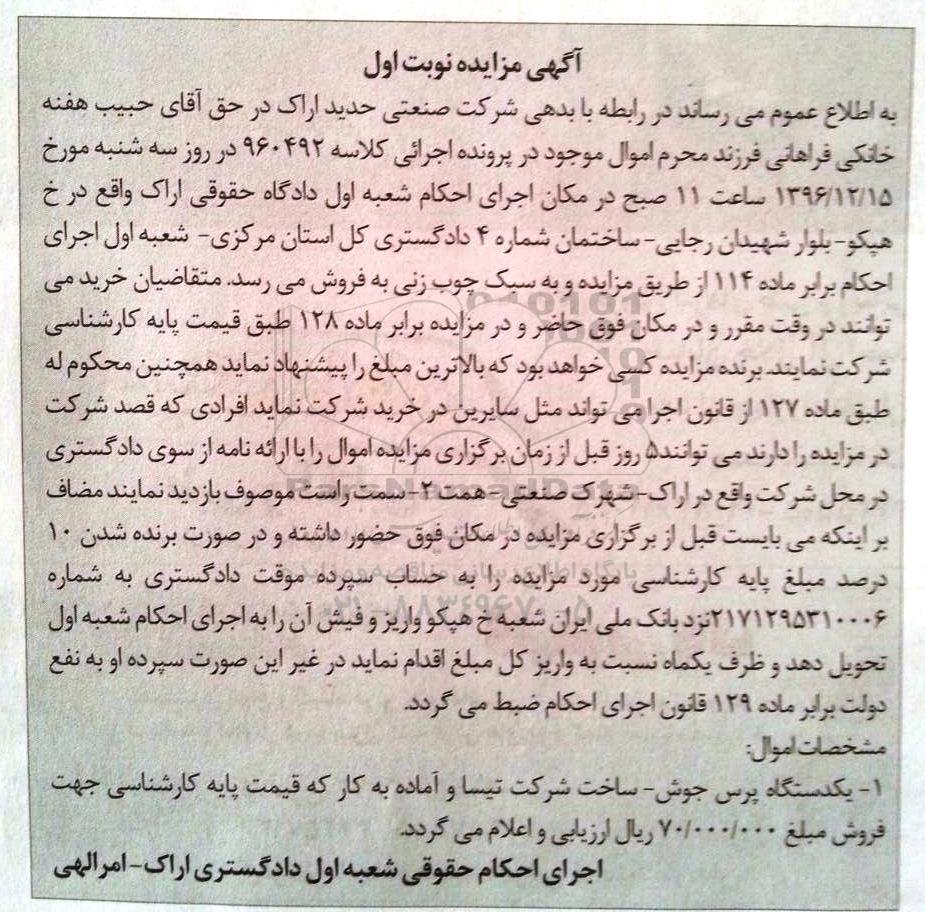 آگهی مزایده نوبت اول
به اطلاع عموم می رساند در رابطه با بدهی شرکت صنعتی حدید اراک در حق آقای حبیب هفته
خانکی فراهانی فرزند محرم اموال موجود در پرونده اجرائی کلاسه ۹۶۰۴۹۲ در روز سه شنبه مورخ
۱۳۹۶/۱۲/۱۵ ساعت ۱۱ صبح در مکان اجرای احکام شعبه اول دادگاه حقوقی اراک واقع در خ
هپکو- بلوار شهیدان رجایی- ساختمان شماره ۴ دادگستری کل استان مرکزی- شعبه اول اجرای
احکام برابر ماده ۱۱۴ از طریق مزایده و به سبک چوب زنی به فروش می رسد. متقاضیان خرید می
توانند در وقت مقرر و در مکان فوق حاضر و در مزایده برابر ماده ۱۲۸ طبق قیمت پایه کارشناسی
شرکت نمایند. برنده مزایده کسی خواهد بود که بالاترین مبلغ را پیشنهاد نماید همچنین محکوم له
طبق ماده ۱۲۷ از قانون اجرا می تواند مثل سایرین در خرید شرکت نماید افرادی که قصد شرکت
در مزایده را دارند می توانند۵ روز قبل از زمان برگزاری مزایده اموال را با ارائه نامه از سوی دادگستری
در محل شرکت واقع در اراک- شهرک صنعتی- همت ۲- سمت راست موصوف بازدید نمایند مضاف
بر اینکه می بایست قبل از برگزاری مزایده در مکان فوق حضور داشته و در صورت برنده شدن ۱۰
درصد مبلغ پایه کارشناسی مورد مزایده را به حساب سپرده موقت دادگستری به شماره
۲۱۷۱۲۹۵۳۱۰۰۰۶نزد بانک ملی ایران شعبه خ هپکو واریز و فیش آن را به اجرای احکام شعبه اول
تحویل دهد و ظرف یکماه نسبت به واریز کل مبلغ اقدام نماید در غیر این صورت سپرده او به نفع
دولت برابر ماده ۱۲۹ قانون اجرای احکام ضبط می گردد.
مشخصات اموال:
۱- یکدستگاه پرس جوش- ساخت شرکت تیسا و آماده به کار که قیمت پایه کارشناسی جهت
فروش مبلغ ۷۰/۰۰۰/۰۰۰ ریال ارزیابی و اعلام می گردد.
اجرای احکام حقوقی شعبه اول دادگستری اراک- امرالهی
ParsNamadData